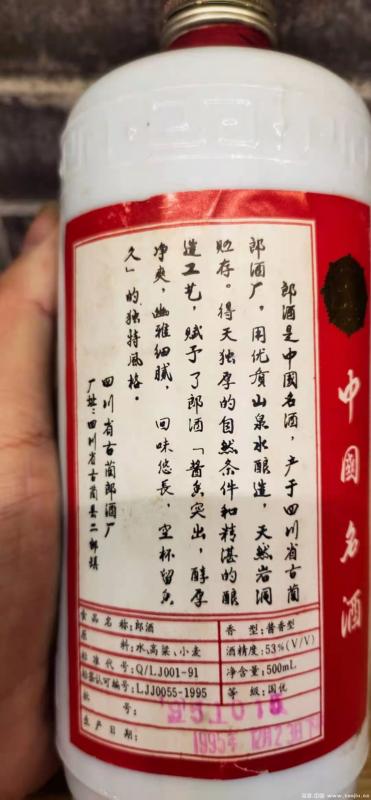 郎酒是中國名酒，产于四川省古蔺
郎酒厂，用优质山泉水酿造，天然岩洞
贮存。得天独厚的自然条件和精湛的酿
造工艺，赋予了郎酒「酱香突出，醇厚
净爽，幽雅细腻，回味悠長，空杯留香
久」的独特風格。
四川省古蔺郎酒厂
厂址：四川省古蔺县二郎镇
中國名酒
食品名称:郎酒
香型:酱香型
原料:水、高粱、小麦
酒精度:53%(V/V)
标准代号:Q/LJ001-91
净含量:500mL
标签认可编号:LJJ0055-1995
等级:国优
批号:
生产日期:
1995年 12月23日